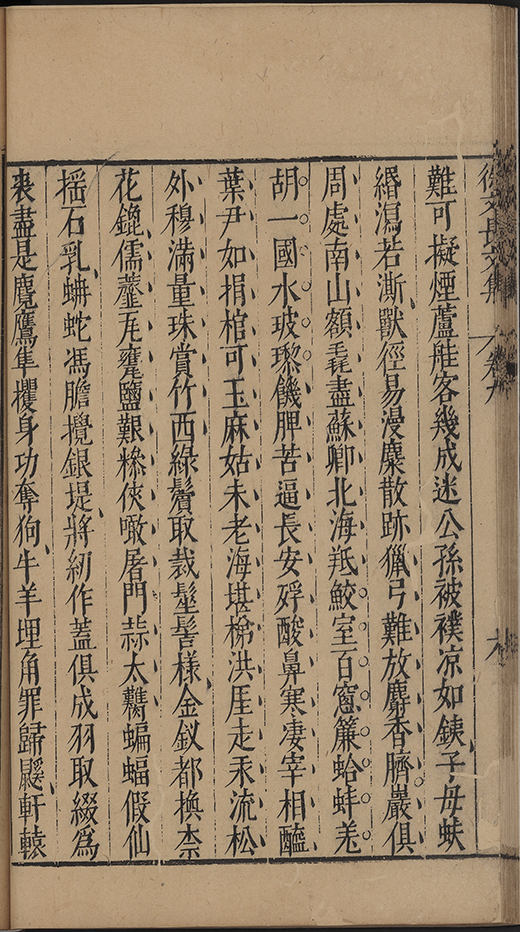 徐文長文集　卷九
難可擬煙蘆䑸客幾成迷公孫被襆凉如鐵子毋蚨
緡瀉若澌獸徑易漫麋散跡獵弓難放麝香臍巖俱
周處南山額毳盡蘇卿北海羝鮫室百窓簾蛤蚌羗
胡一國水玻瓈饑脾苦逼長安䍧酸鼻寒凄宰相醯
葉尹如捐棺可玉麻姑未老海堪梯洪厓走汞流松
外穆滿量珠賞竹西綠鬢取裁髽髻樣金釵都換柰
花鎞儒虀瓦甕鹽艱糝俠噉屠門蒜太虀蝙蝠假仙
揺石乳蚺蛇馮膽攪銀堤將紉作蓋俱成羽取綴爲
裘盡是麑鷹隼攫身功奪狗牛羊埋角罪歸鼷軒轅